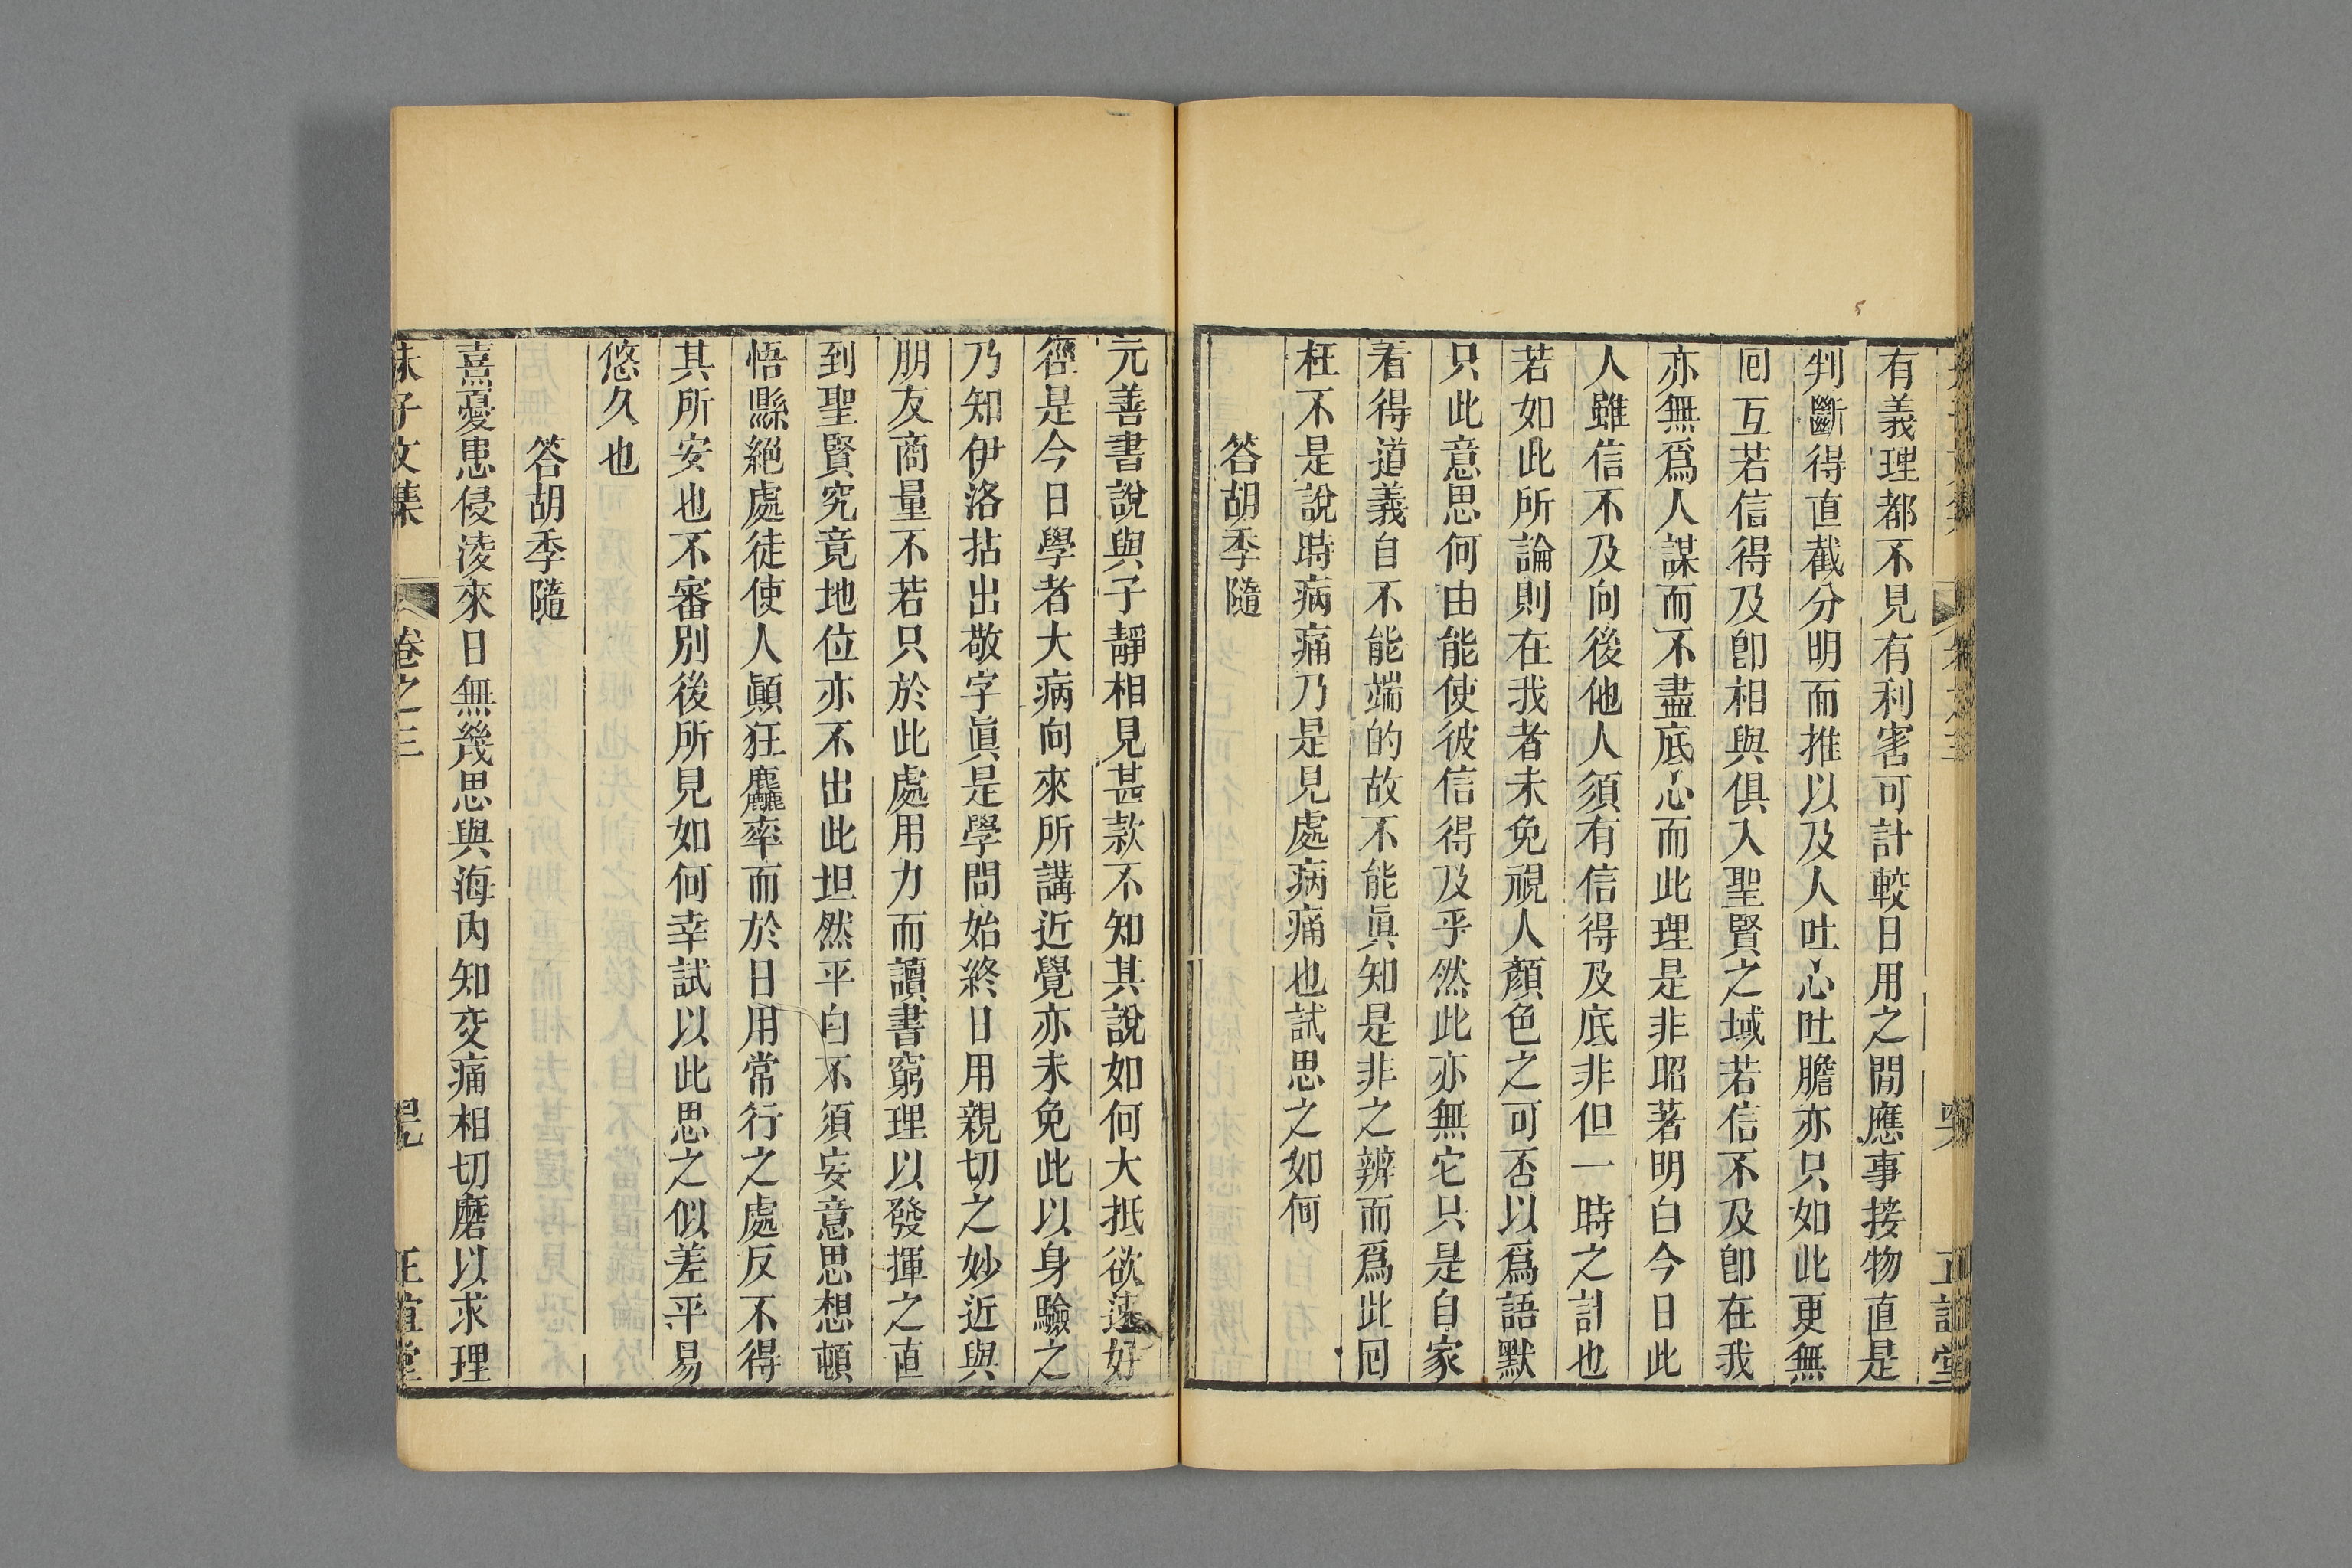 有義理都不見有利害可計較日用之閒應事接物直是
判斷得直截分明而推以及人吐心吐膽亦只如此更無
囘互若信得及卽相與俱入聖賢之域若信不及卽在我
亦無爲人謀而不盡底心而此理是非昭著明白今日此
人雖信不及向後他人須有信得及底非但一時之計也
若如此所論則在我者未免視人顏色之可否以爲語默
只此意思何由能使彼信得及乎然此亦無它只是自家
看得道義自不能端的故不能眞知是非之辨而爲此囘
枉不是說時病痛乃是見處病痛也試思之如何
答胡季隨
元善書說與子靜相見甚款不知其說如何大抵欲速好
徑是今日學者大病向來所講近覺亦未免此以身驗之
乃知伊洛拈出敬字眞是學問始終日用親切之妙近與
朋友商量不若只於此處用力而讀書窮理以發揮之直
到聖賢究竟地位亦不出此坦然平白不須妄意思想頓
悟懸絕處徒使人顚狂麤率而於日用常行之處反不得
其所安也不審別後所見如何幸試以此思之似差平易
悠久也
答胡季隨
熹憂患侵淩來日無幾思與海內知交痛相切磨以求理
朱子文集
卷之三
正誼堂